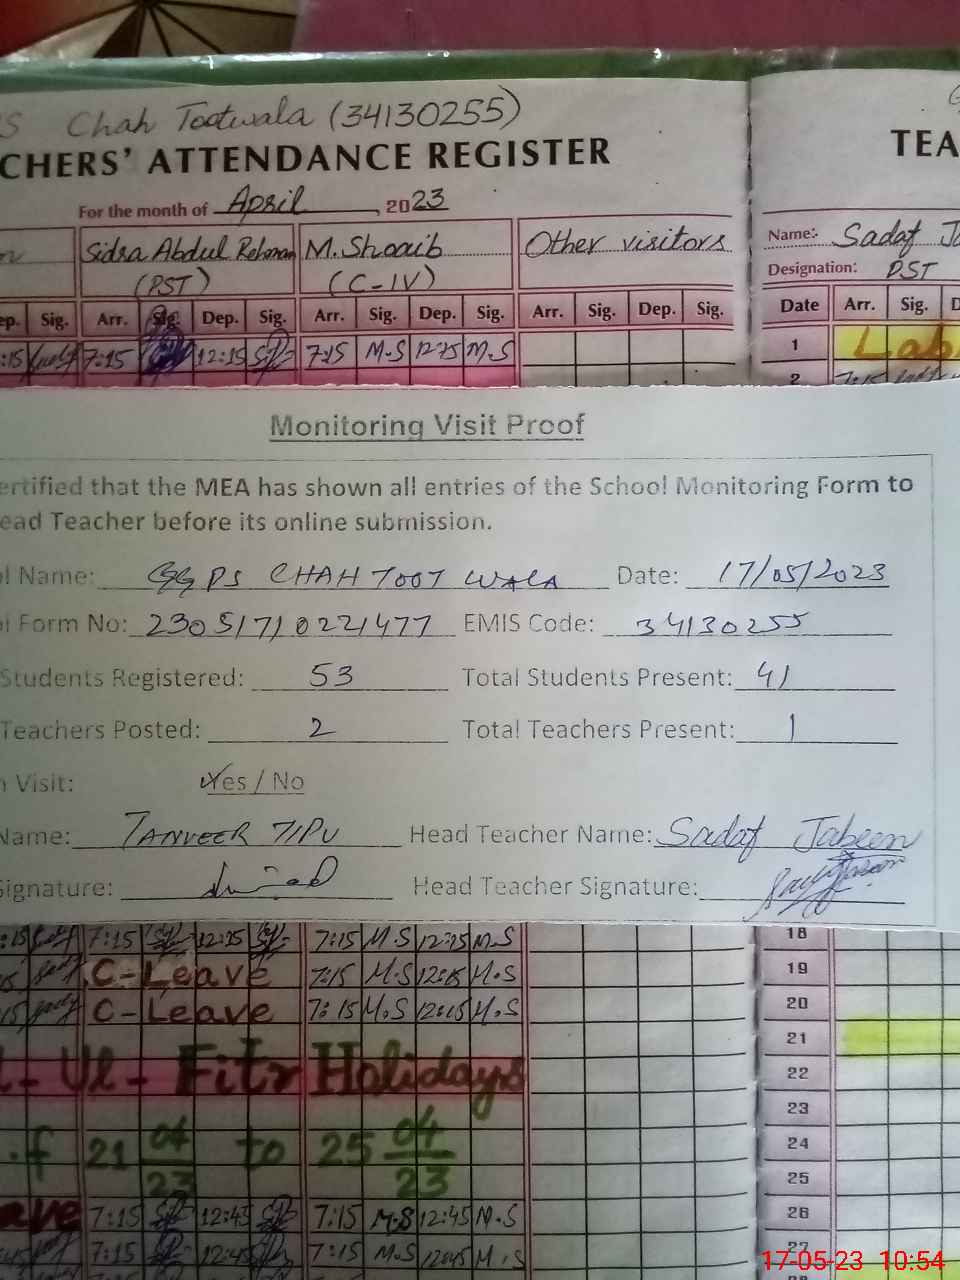 S Chah Tootwala (34130255)
CHERS' ATTENDANCE REGISTER
TEA
For the month of April, 2023
Sidra Abdul Rehman M. Shoaib Other visitors
(PST) (C-IV)
Name:- Sadaf Ja
Designation: PST
ep. Sig. Arr. Sig. Dep. Sig. Arr. Sig. Dep. Sig. Arr. Sig. Dep. Sig. Date Arr. Sig. D
:15 7:15 12:15 7:15 M.S 12:15 M.S 1 Lab
2 7:15
Monitoring Visit Proof
ertified that the MEA has shown all entries of the School Monitoring Form to
ead Teacher before its online submission.
l Name: GGPS CHAH TOOT WALA Date: 17/05/2023
l Form No: 23051710221477 EMIS Code: 34130255
Students Registered: 53 Total Students Present: 41
Teachers Posted: 2 Total Teachers Present: 1
n Visit: Yes / No
Name: TANVEER TIPU Head Teacher Name: Sadaf Jabeen
Signature: Head Teacher Signature:
:15 7:15 12:15 7:15 M.S 12:15 M.S 18
C-Leave 7:15 M.S 12:15 M.S 19
C-Leave 7:15 M.S 12:15 M.S 20
21
l-Ul-Fitr Holidays 22
23
.f 21 04/23 to 25 04/23 24
25
ave 7:15 12:45 7:15 M.S 12:45 M.S 26
7:15 12:45 7:15 M.S 12:45 M.S 27
17-05-23 10:54